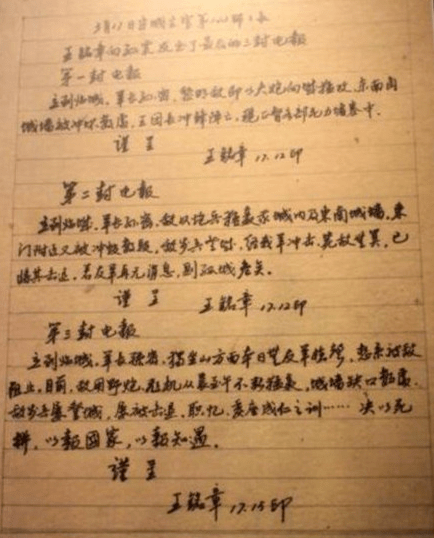 3月17日
王铭章向孙震发出了最后的三封电报
第一封电报
立到临城,军长孙密,黎明敌即以大炮向我猛攻,东南角
城墙被冲破数处,王团长冲锋阵亡,现正督各部死力堵塞中。
谨呈
王铭章 17.12印
第二封电报
立到临城,军长孙密,敌以炮兵猛轰我城内及东南城墙,东
门附近又被冲破数段,敌步兵登城,经我军冲击,毙敌无算,已
将其击退,若友军再无消息,则孤城危矣。
谨呈 王铭章 17.12印
第三封电报
立到临城,军长孙密,独座山方面本日无友军枪声,想系被敌
阻止,目前,敌用野炮,飞机从晨至午不断猛轰,城墙缺口数处,
敌步兵屡登城,屡被击退,职忆委座成仁之训……决以死
拼,以报国家,以报知遇。
谨呈
王铭章 17.15印